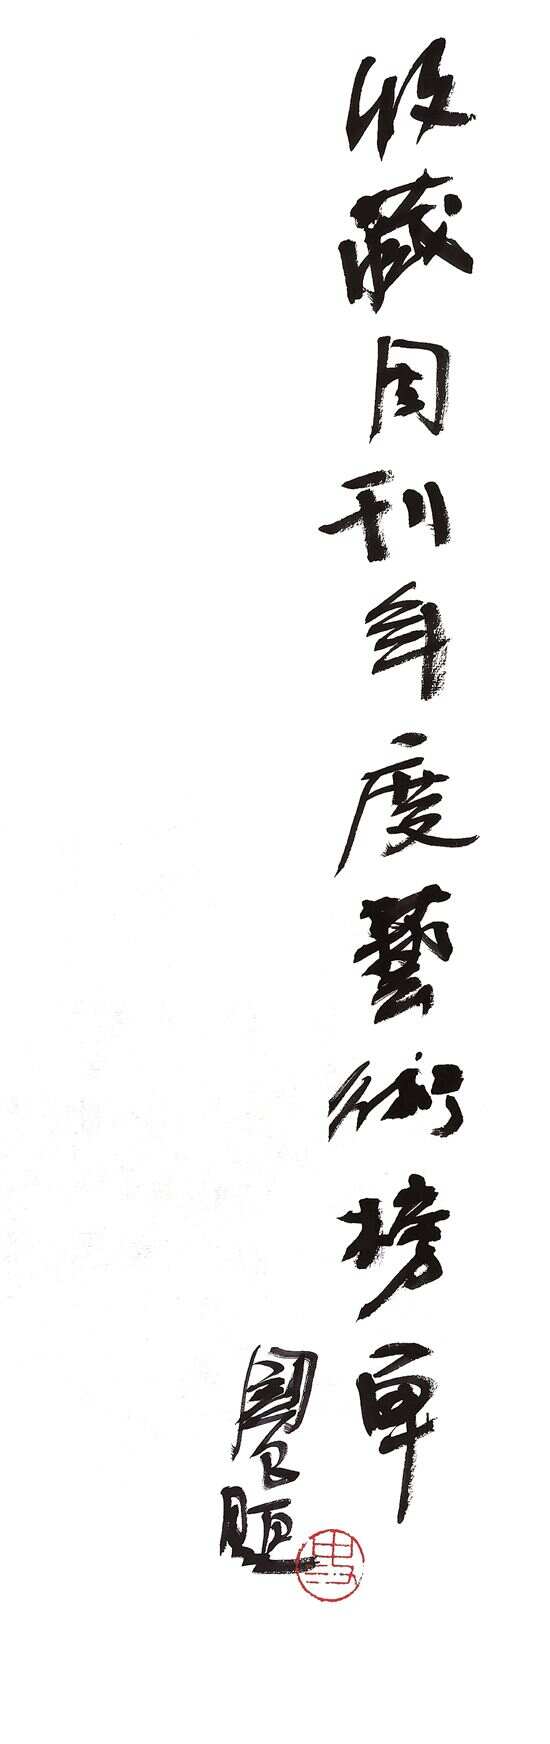 收藏周刊年度藝術榜單